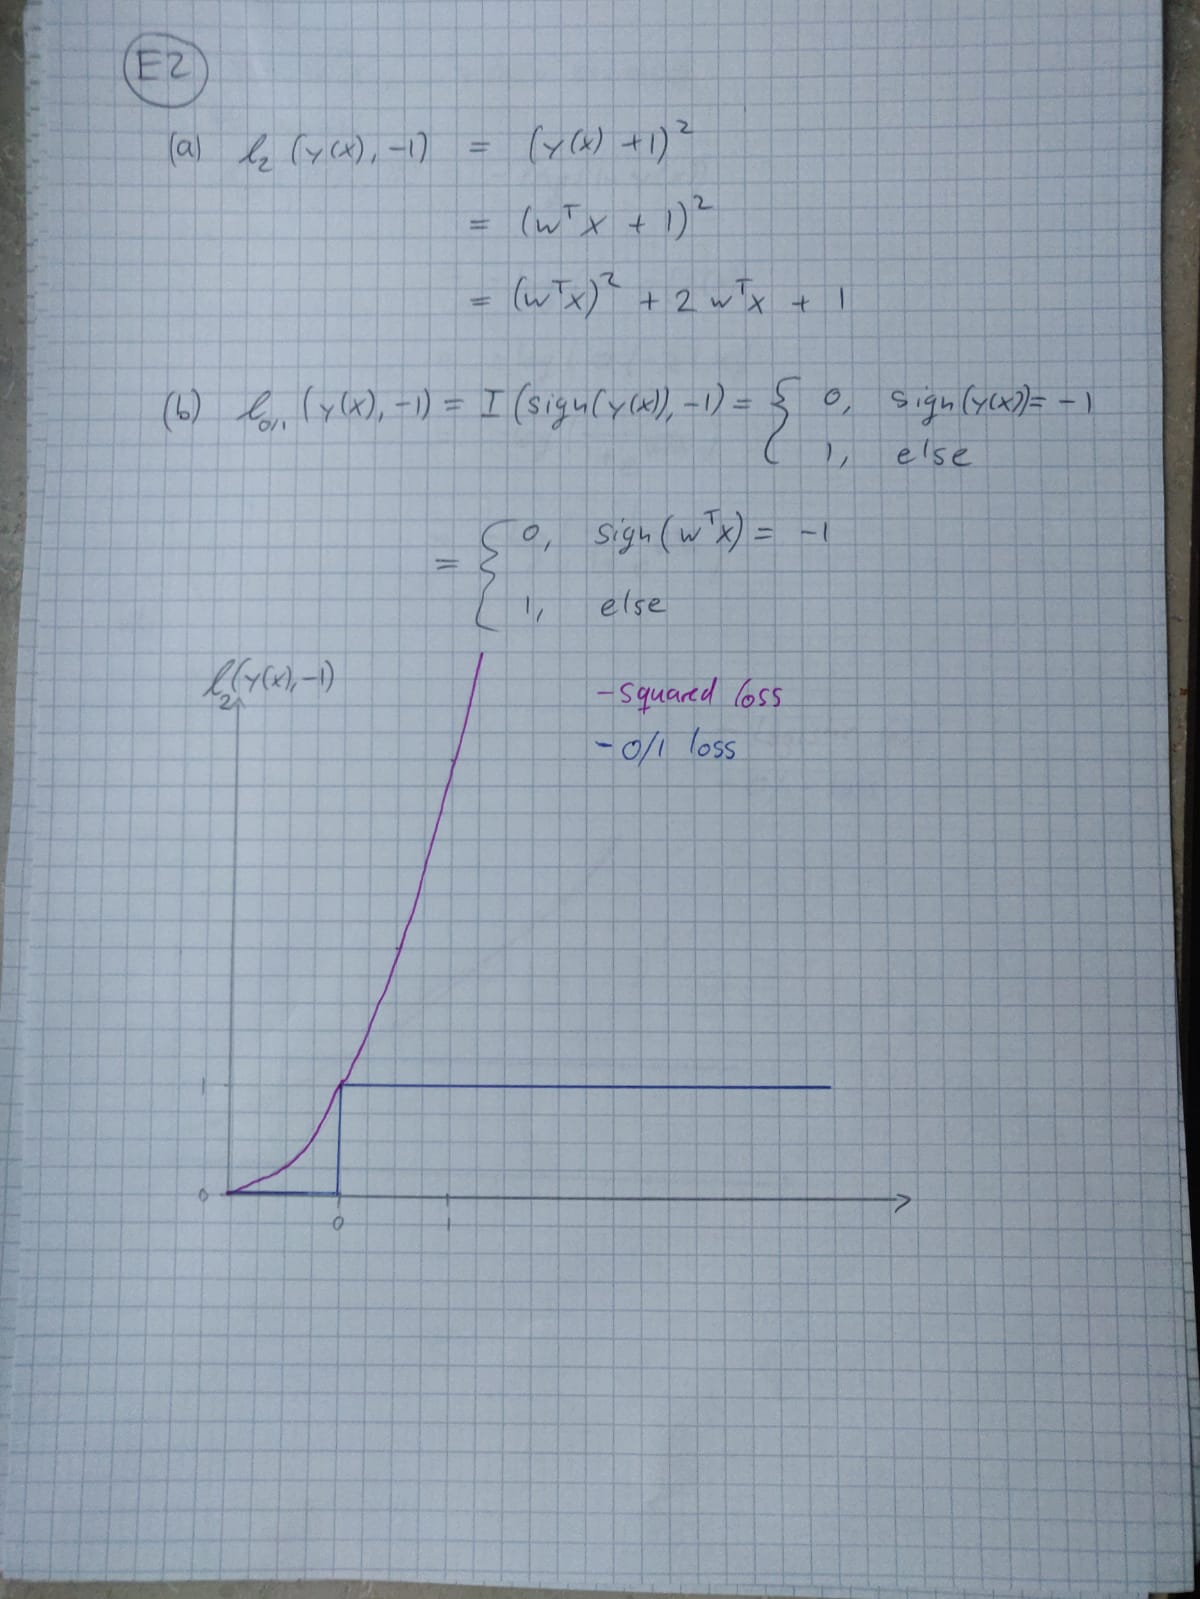 E2
(a) ℓ₂ (y(x), -1) = (y(x) +1)²
= (wᵀx + 1)²
= (wᵀx)² + 2 wᵀx + 1
(b) ℓ₀/₁ (y(x), -1) = I (sign(y(x)), -1) = { 0, sign(y(x)) = -1
1, else
= { 0, sign(wᵀx) = -1
1, else
ℓ₂(y(x), -1)
- squared loss
- 0/1 loss
1
0
0 1